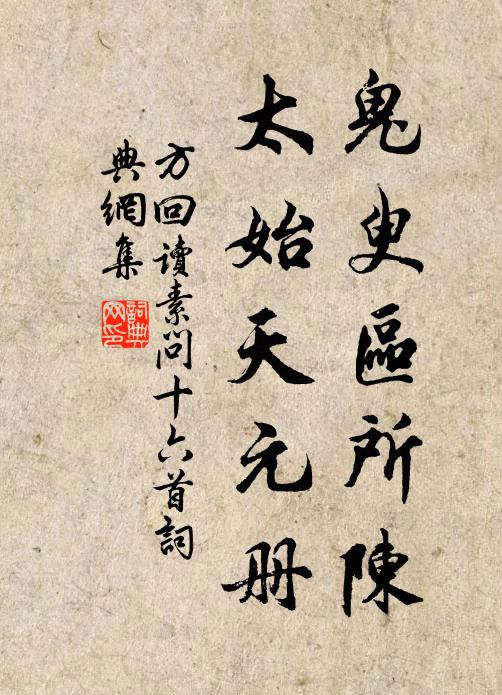 鬼叟區所陳
太始天元册
方回讀素問十六首詞
典網集
詞典网印